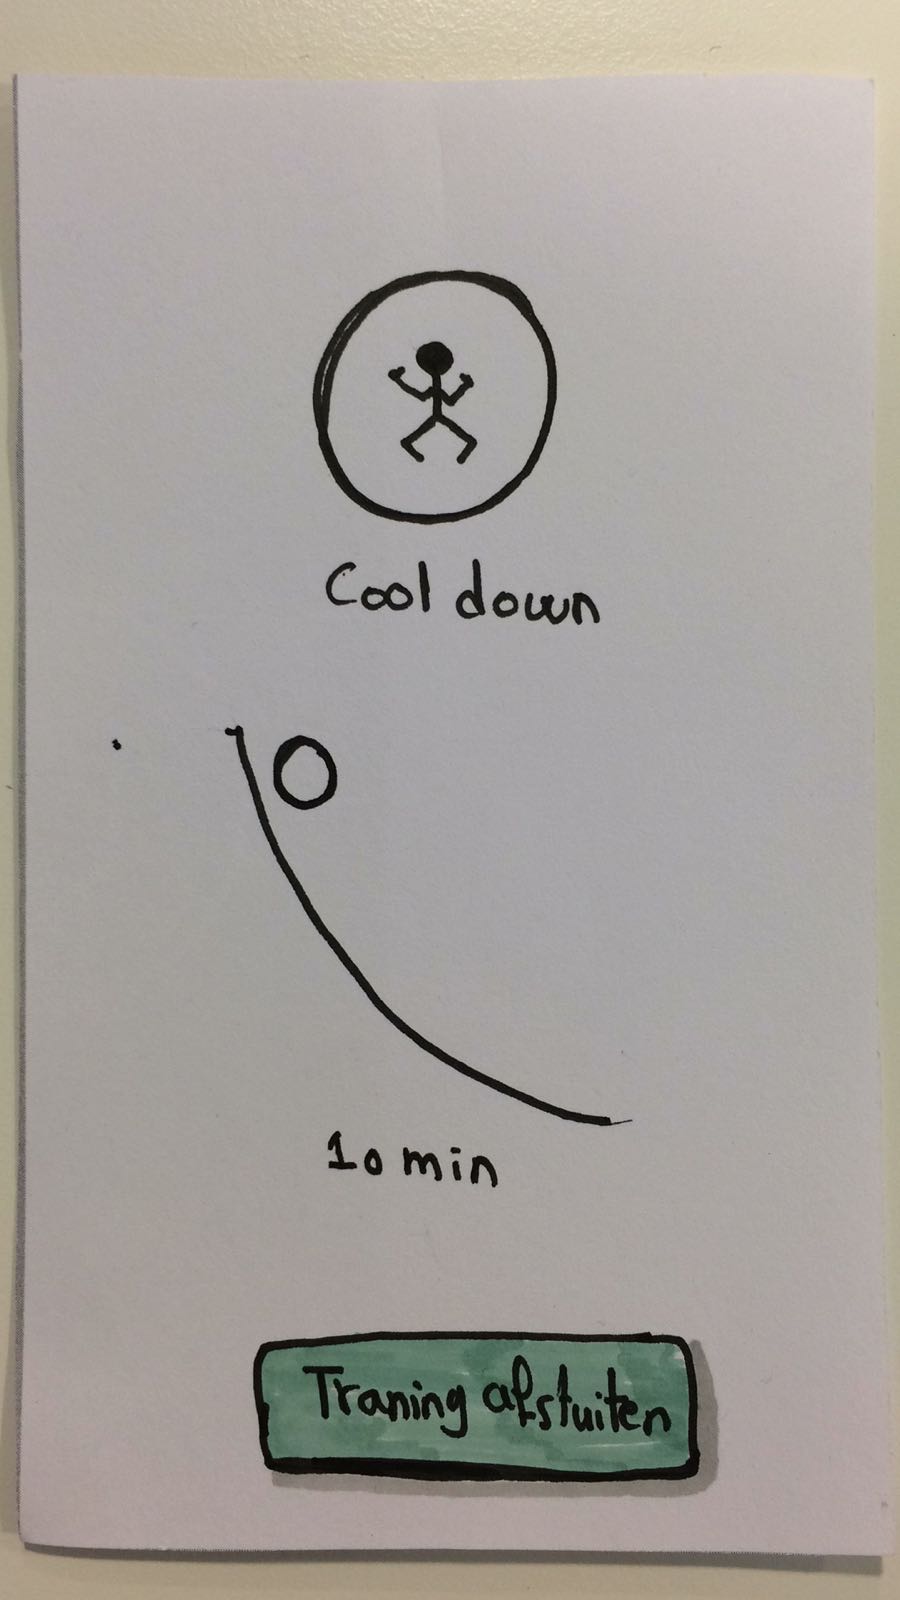 Cool down
10 min
Traning afstuiten